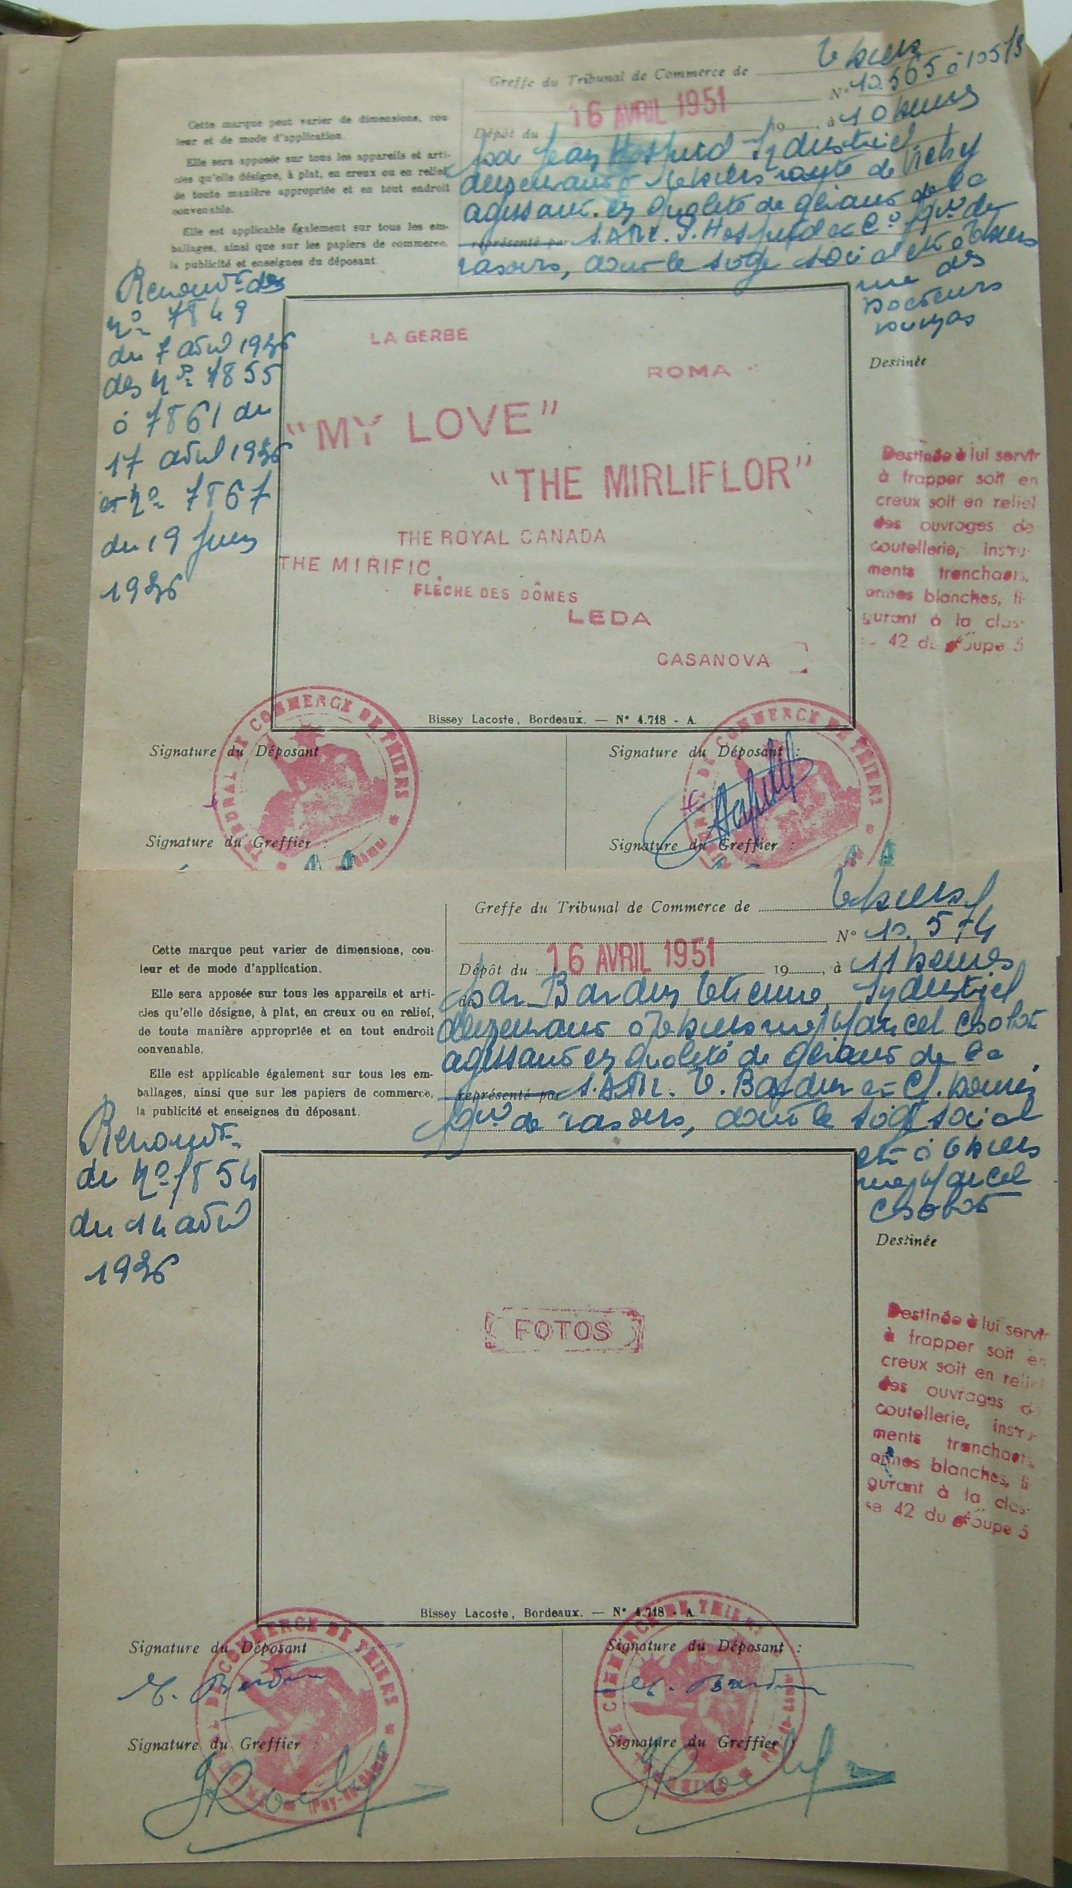 Greffe du Tribunal de Commerce de Thiers
N° 10.565 à 10573
16 AVRIL 1951
Dépôt du 19 , à 10 heures
par Jean Industriel
demeurant à Thiers route de Vichy
agissant en qualité de gérant de la
représenté par S.A.R.L. J. et Cie de
rasoirs, dont le siège social est à Thiers
rue des
Docteurs
Dumas
Cette marque peut varier de dimensions, cou-
leur et de mode d'application.
Elle sera apposée sur tous les appareils et arti-
cles qu'elle désigne, à plat, en creux ou en relief,
de toute manière appropriée et en tout endroit
convenable.
Elle est applicable également sur tous les em-
ballages, ainsi que sur les papiers de commerce,
la publicité et enseignes du déposant.
Renouvt des
nº 7849
du 7 avril 1936
des nº 7855
à 7861 du
17 avril 1936
et nº 7867
du 19 juin
1936
LA GERBE
ROMA
"MY LOVE"
"THE MIRLIFLOR"
THE ROYAL CANADA
THE MIRIFIC
FLÈCHE DES DÔMES
LEDA
CASANOVA
Destinée
Destinée à lui servir
à frapper soit en
creux soit en relief
des ouvrages de
coutellerie, instru-
ments tranchants,
armes blanches, fi-
gurant à la clas-
se 42 du groupe 5
Bissey Lacoste, Bordeaux. — N° 4.718 - A
Signature du Déposant
Signature du Déposant :
TRIBUNAL DE COMMERCE DE THIERS
TRIBUNAL DE COMMERCE DE THIERS
Signature du Greffier :
Signature du Greffier :
Greffe du Tribunal de Commerce de Thiers
N° 10.574
16 AVRIL 1951
Dépôt du 19 , à 11 heures
de par Bardin Etienne, Industriel
demeurant à Thiers rue Marcel Chobot
agissant en qualité de gérant de la
représenté par S.A.R.L. E. Bardin et
de rasoirs, dont le siège social
est à Thiers
rue Marcel
Chobot
Cette marque peut varier de dimensions, cou-
leur et de mode d'application.
Elle sera apposée sur tous les appareils et arti-
cles qu'elle désigne, à plat, en creux ou en relief,
de toute manière appropriée et en tout endroit
convenable.
Elle est applicable également sur tous les em-
ballages, ainsi que sur les papiers de commerce,
la publicité et enseignes du déposant.
Renouvt
du nº 7854
du 14 avril
1936
FOTOS
Destinée
Destinée à lui servir
à frapper soit en
creux soit en relief
des ouvrages de
coutellerie, instru-
ments tranchants,
armes blanches, fi-
gurant à la clas-
se 42 du groupe 5
Bissey Lacoste, Bordeaux. — N° 4.718 - A
Signature du Déposant
Signature du Déposant :
E. Bardin
E. Bardin
TRIBUNAL DE COMMERCE DE THIERS (Puy-de-Dôme)
TRIBUNAL DE COMMERCE DE THIERS (Puy-de-Dôme)
Signature du Greffier :
Signature du Greffier :